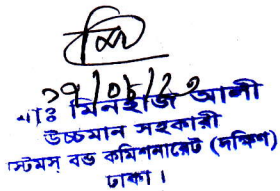 ১৭/০৮/২৩
মোঃ মিনহাজ আলী
উচ্চমান সহকারী
স্টমস্ বন্ড কমিশনারেট (দক্ষিণ)
ঢাকা।